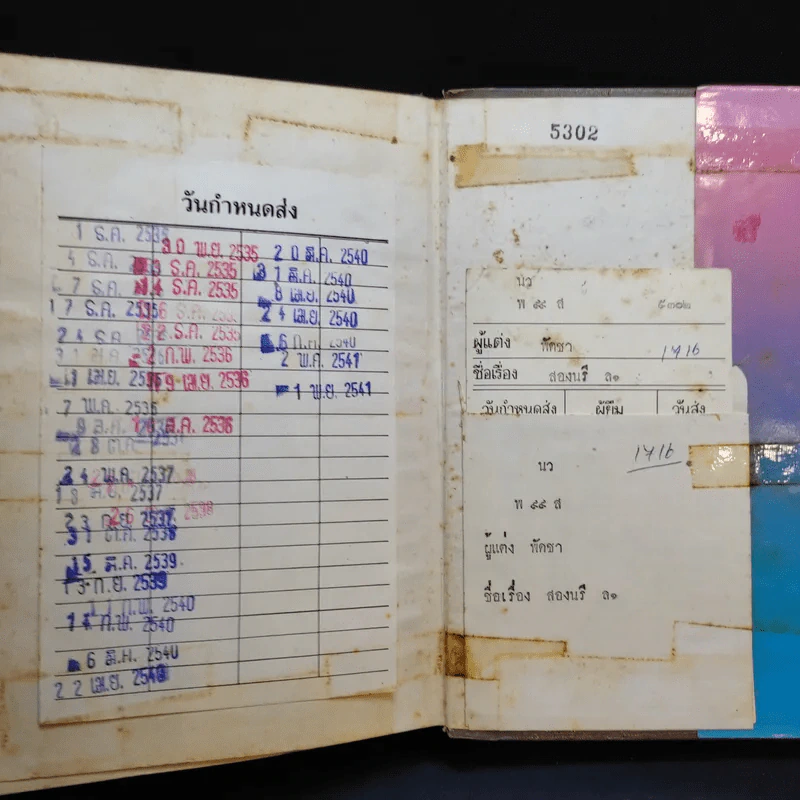 วันกำหนดส่ง
1 ธ.ค. 2535
3 0 พ.ย. 2535
2 0 มี.ค. 2540
4 ธ.ค.
ธ.ค. 2535
3 1 มี.ค. 2540
7 ธ.ค.
1 4 ธ.ค. 2535
8 เม.ย. 2540
1 7 ธ.ค.
2 4 เม.ย. 2540
2 4 ธ.ค.
2 2 ธ.ค. 2535
2540
2 ก.พ. 2536
2 พ.ค. 2541
เม.ย. 2536
9 เม.ย. 2536
1 พ.ย. 2541
7 พ.ค. 2536
ต.ค. 2536
2 8 ต.ค.
2 4 พ.ค. 2537
2537
2 3 ก.ย. 2537
3 1 ต.ค. 2538
15 มี.ค. 2539
1 3 ก.ย. 2539
ก.พ. 2540
1 4 ก.พ. 2540
6 มี.ค. 2540
2 2 เม.ย. 2540
5302
นว
พ ๙๙ ส
๕๓๐๒
ผู้แต่ง พัดชา
1716
ชื่อเรื่อง สองนรี ล๑
วันกำหนดส่ง ผู้ยืม วันส่ง
1716
นว
พ ๙๙ ส
ผู้แต่ง พัดชา
ชื่อเรื่อง สองนรี ล๑